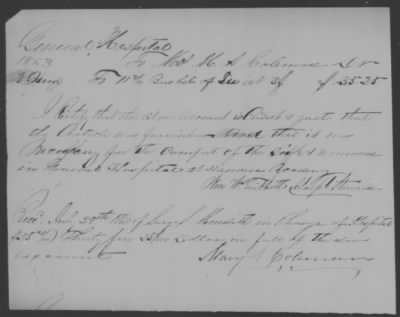 General Hospital
To Mrs M. A. Coleman Dr
1863
To 11 3/4 Bushels of Ice at 3$ $35.25
I Certify that the above account is correct & just that
the Articles were furnished and that it was
necessary for the comfort of the sick & wounded
in General Hospital at
Recd July 30th 1863 of Surg Meredith in charge of Hospital
($35 25/100) Thirty five 25/100 Dollars in full of the above
account
Mary A Coleman